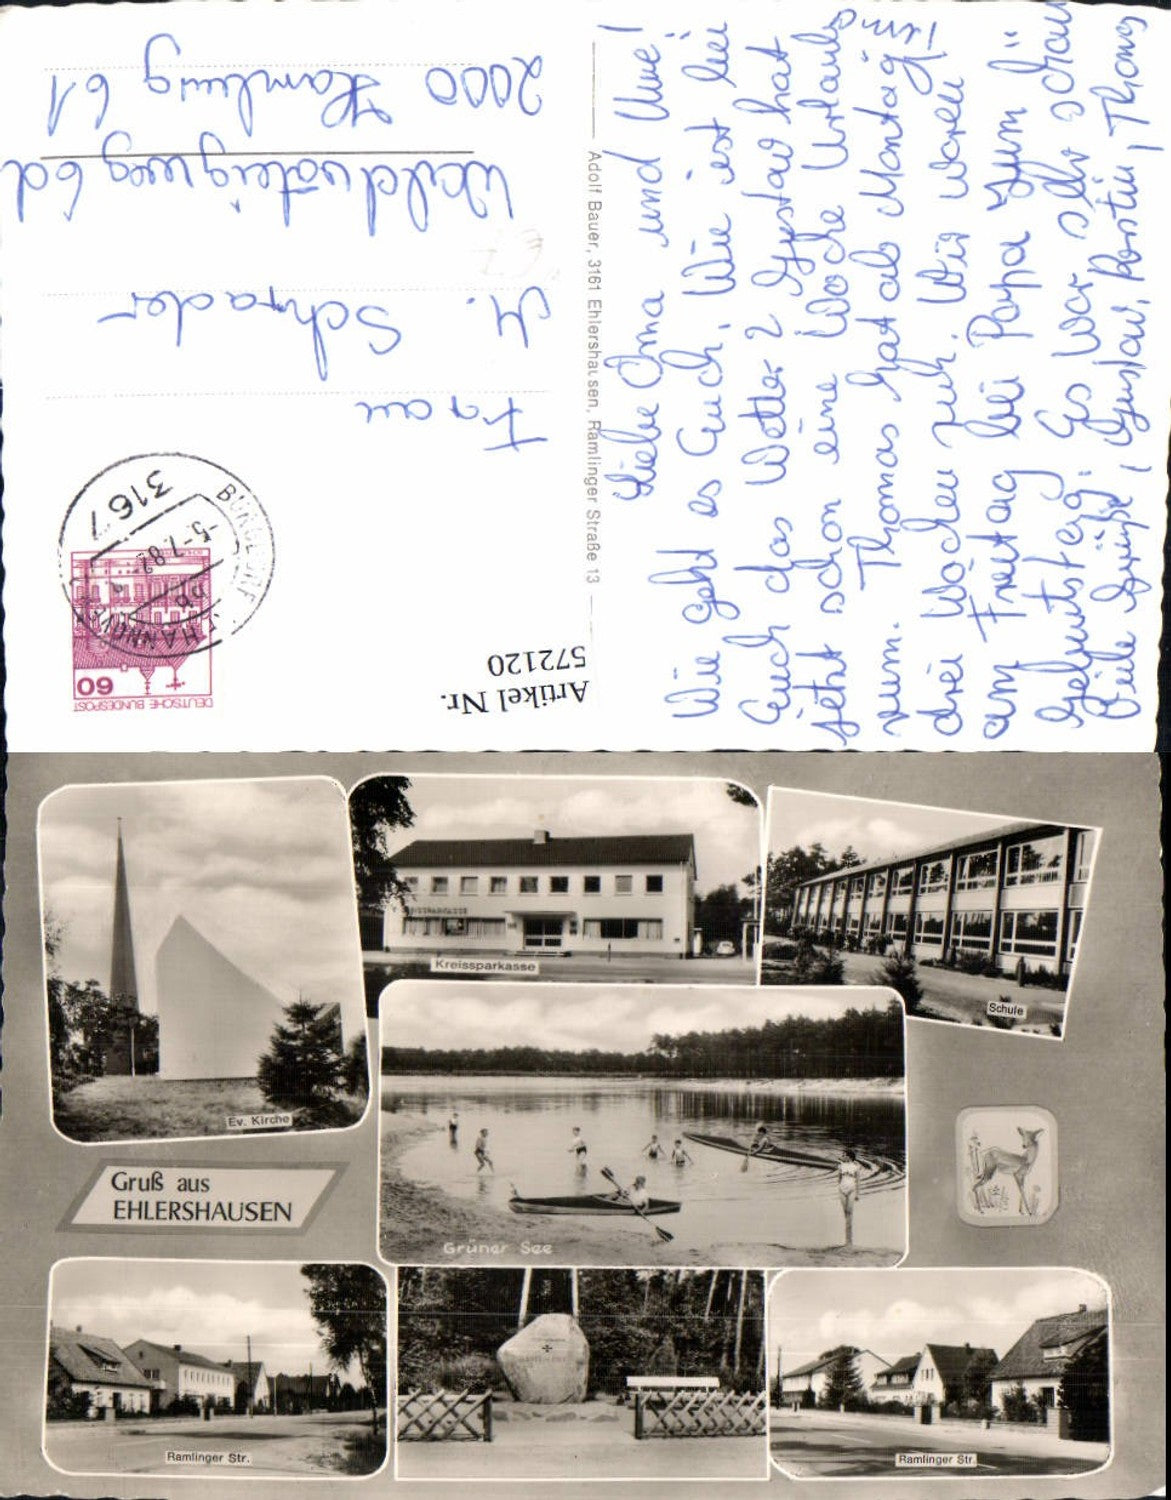 Liebe Oma und Uwe!
Wie geht es Euch, Wie ist bei
Euch das Wetter? Gustav hat
jetzt schon eine Woche Urlaub
rum. Thomas hat ab Montag
drei Wochen zuh. Wir waren
am Freitag bei Papa zum
Geburtstag. Es war sehr schön
Viele Grüße, Gustav, Kerstin, Thomas
Adolf Bauer, 3161 Ehlershausen, Ramlinger Straße 13
Artikel Nr.
572120
DEUTSCHE BUNDESPOST
60
3167 BURGDORF
-5.-7.82
HANNOVER
Frau
M. Schrader
2000 Hamburg 61
Ev. Kirche
Kreissparkasse
KREISSPARKASSE
Schule
Gruß aus
EHLERSHAUSEN
Grüner See
Ramlinger Str.
Ramlinger Str.